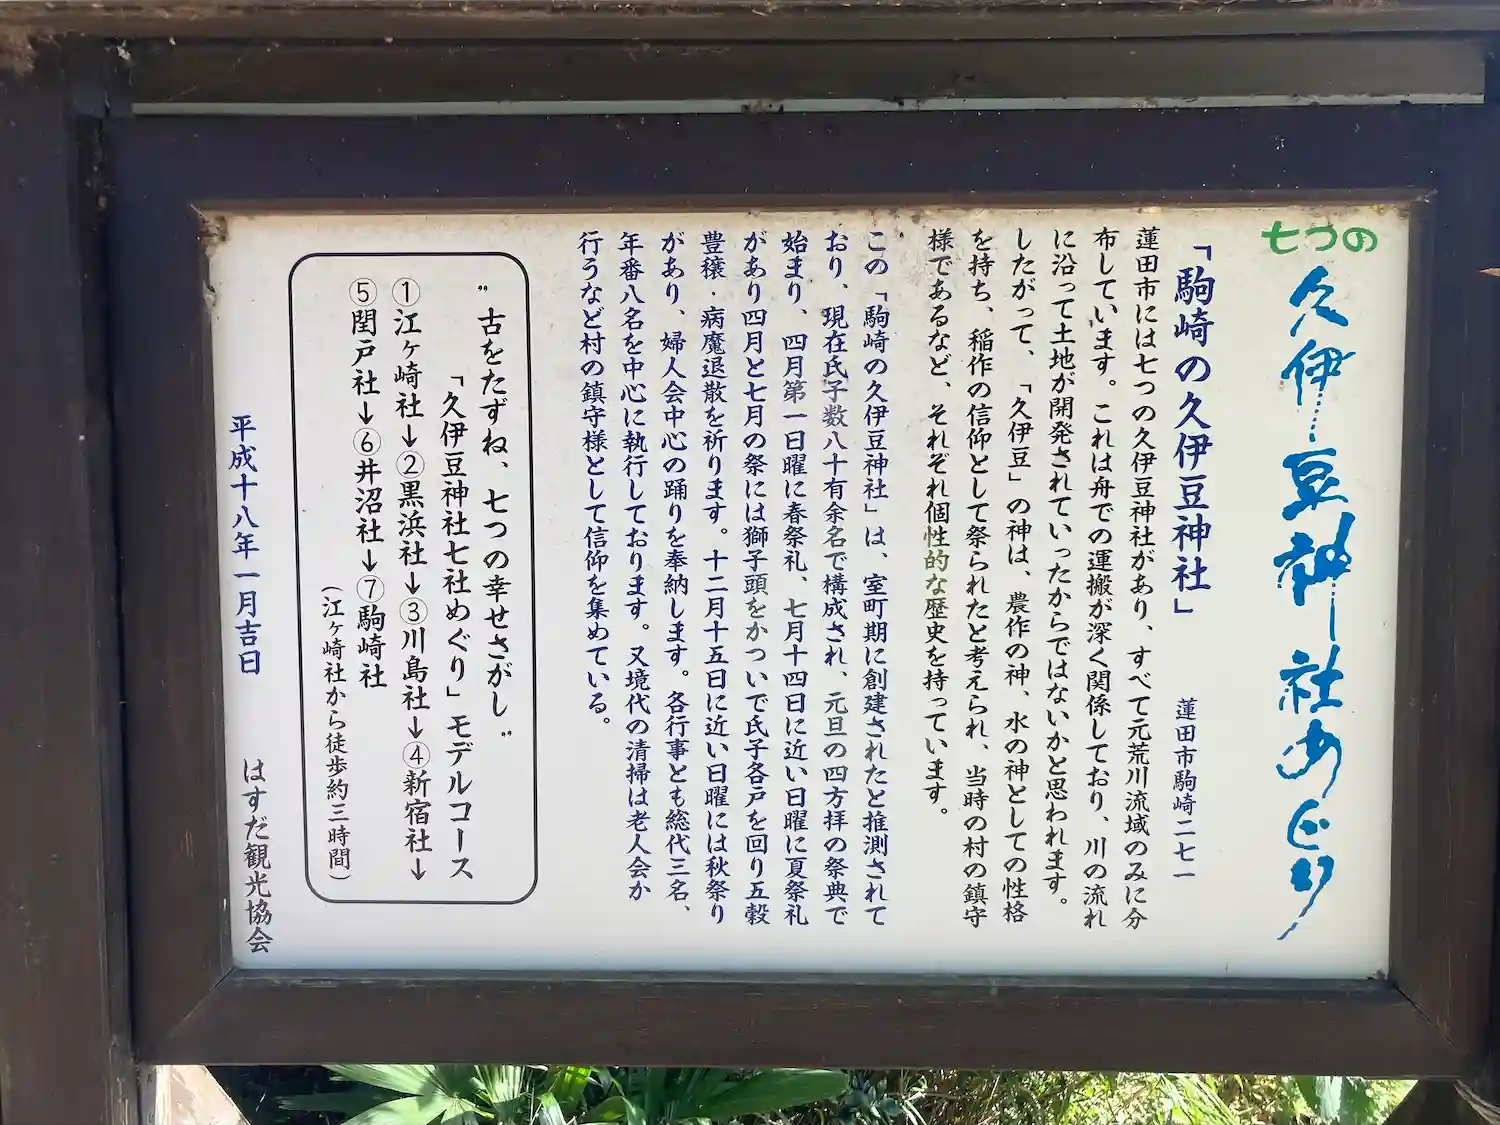 七つの
久伊豆神社めぐり
「駒崎の久伊豆神社」
蓮田市駒崎二七一
蓮田市には七つの久伊豆神社があり、すべて元荒川流域のみに分
布しています。これは舟での運搬が深く関係しており、川の流れ
に沿って土地が開発されていったからではないかと思われます。
したがって、「久伊豆」の神は、農作の神、水の神としての性格
を持ち、稲作の信仰として祭られたと考えられ、当時の村の鎮守
様であるなど、それぞれ個性的な歴史を持っています。
この「駒崎の久伊豆神社」は、室町期に創建されたと推測されて
おり、現在氏子数八十有余名で構成され、元旦の四方拝の祭典で
始まり、四月第一日曜に春祭礼、七月十四日に近い日曜に夏祭礼
があり四月と七月の祭には獅子頭をかついで氏子各戸を回り五穀
豊穣・病魔退散を祈ります。十二月十五日に近い日曜には秋祭り
があり、婦人会中心の踊りを奉納します。各行事とも総代三名、
年番八名を中心に執行しております。又境代の清掃は老人会か
行うなど村の鎮守様として信仰を集めている。
〝古をたずね、七つの幸せさがし〟
「久伊豆神社七社めぐり」モデルコース
①江ヶ崎社→②黒浜社→③川島社→④新宿社→
⑤閏戸社→⑥井沼社→⑦駒崎社
(江ヶ崎社から徒歩約三時間)
平成十八年一月吉日
はすだ観光協会